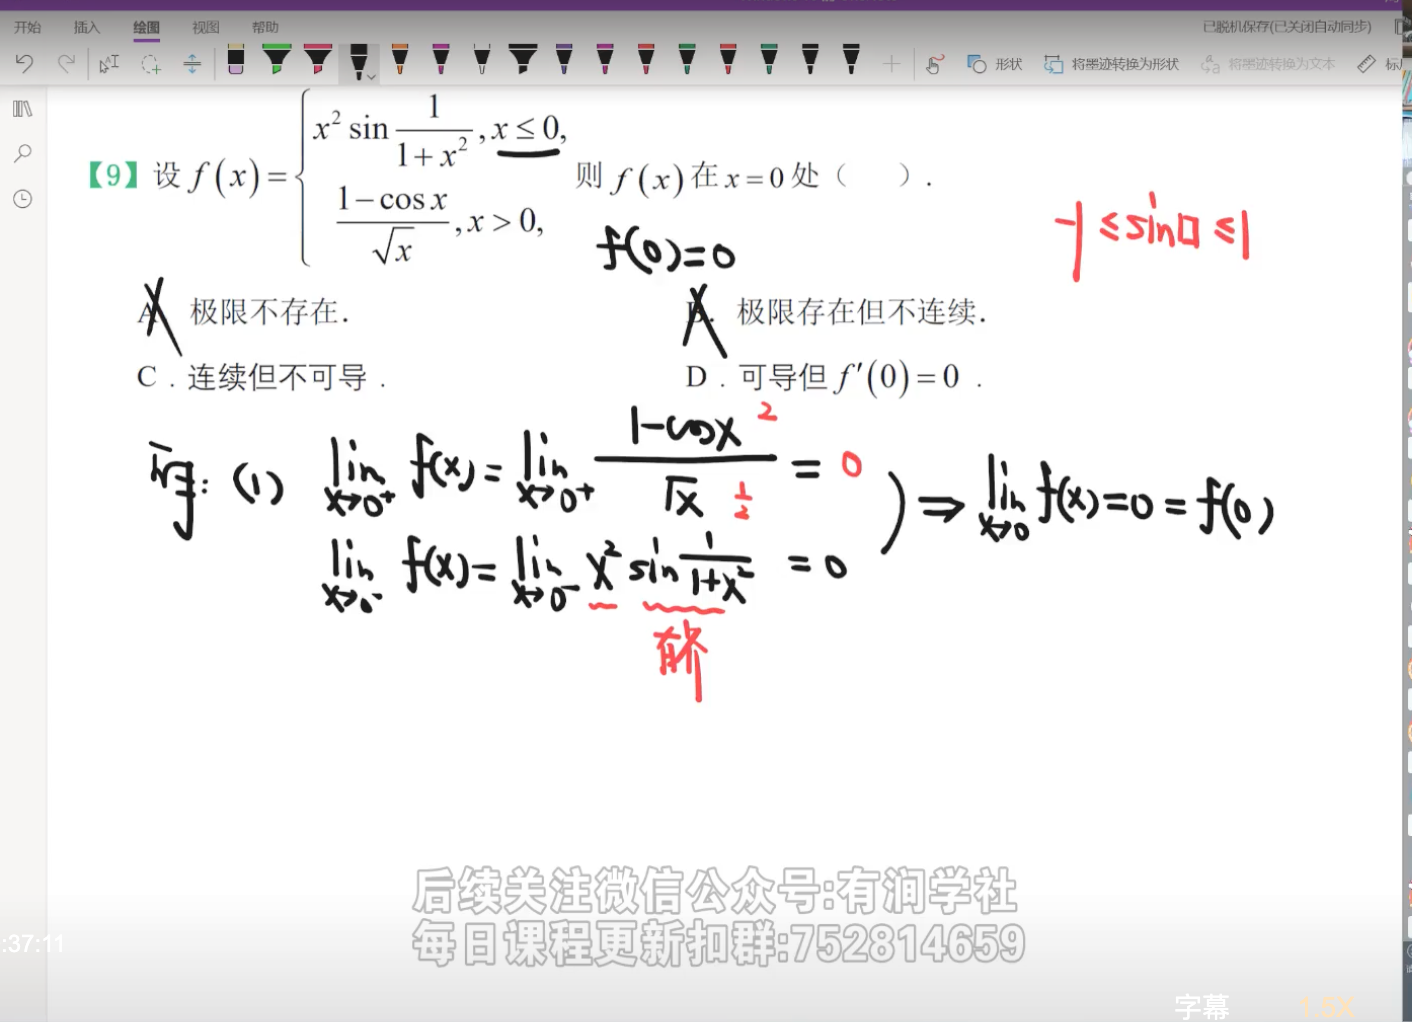 开始 插入 绘图 视图 帮助 已脱机保存(已关闭自动同步)
形状 将墨迹转换为形状 将墨迹转换为文本
【9】设 f(x)= { x² sin 1/(1+x²), x≤0, (1-cos x)/√x, x>0, 则 f(x) 在 x=0 处（ ）.
f(0)=0
-1≤sin□≤1
A 极限不存在.
B. 极限存在但不连续.
C.连续但不可导.
D.可导但 f′(0)=0.
(1) lim x→0⁺ f(x)= lim x→0⁺ (1-cosx)/√x = 0
2
1/2
lim x→0⁻ f(x)= lim x→0⁻ x² sin 1/(1+x²) = 0
⇒ lim x→0 f(x)=0=f(0)
有界
后续关注微信公众号:有润学社
每日课程更新扣群:752814659
:37:11
字幕 1.5X